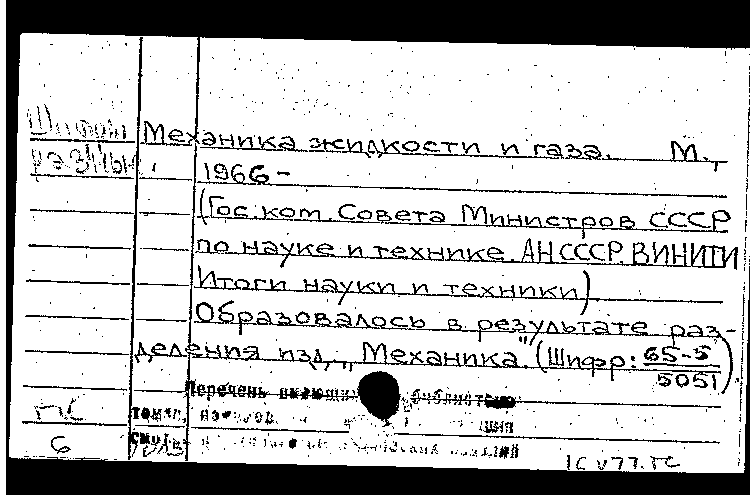 Шифры
разные
Механика жидкости и газа. М.,
1966-
(Гос. ком. Совета Министров СССР
по науке и технике. АН СССР. ВИНИТИ
Итоги науки и техники)
Образовалось в результате раз-
деления изд. „Механика." (Шифр: 65-5
5051)
Перечень
ПС
6